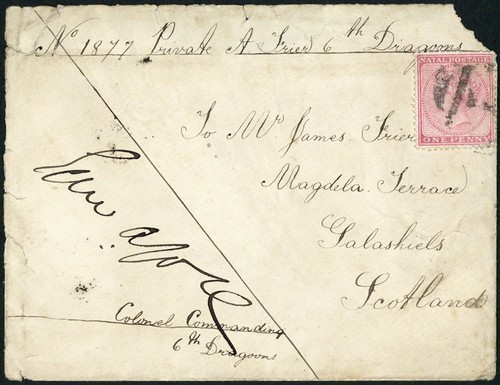 No 1877 Private A Frier 6th Dragoons
NATAL POSTAGE
ONE PENNY
To Mr James Frier
Magdela Terrace
Galashiels
Scotland
Colonel Commanding
6th Dragoons